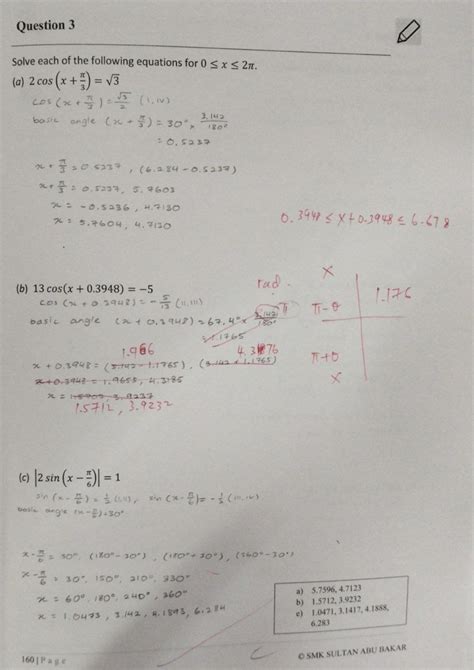 Question 3
Solve each of the following equations for 0 ≤ x ≤ 2π.
(a) 2 cos (x + π/3) = √3
cos (x + π/3) = √3/2 (I, IV)
basic angle (x + π/3) = 30° × 3.142/180°
= 0.5237
x + π/3 = 0.5237, (6.284 - 0.5237)
x + π/3 = 0.5237, 5.7603
x = -0.5236, 4.7130
x = 5.7604, 4.7130
0.3948 ≤ x + 0.3948 ≤ 6.678
(b) 13 cos(x + 0.3948) = -5
cos (x + 0.3948) = -5/13 (II, III)
rad.
x
π
π-θ
1.176
basic angle (x + 0.3948) = 67.4° × 3.142/180°
1.1765
π+θ
x
1.966
x + 0.3948 = (3.142 - 1.1765), (3.142 + 1.1765)
x + 0.3948 = 1.9655, 4.3185
x = 1.5707, 3.9237
1.5712, 3.9232
(c) |2 sin (x - π/6)| = 1
sin (x - π/6) = 1/2 (I, II), sin (x - π/6) = -1/2 (III, IV)
basic angle (x - π/6) = 30°
x - π/6 = 30°, (180° - 30°), (180° + 30°), (360° - 30°)
x - π/6 = 30°, 150°, 210°, 330°
x = 60°, 180°, 240°, 360°
x = 1.0473, 3.142, 4.1893, 6.284
a) 5.7596, 4.7123
b) 1.5712, 3.9232
c) 1.0471, 3.1417, 4.1888,
6.283
160 | Page
© SMK SULTAN ABU BAKAR